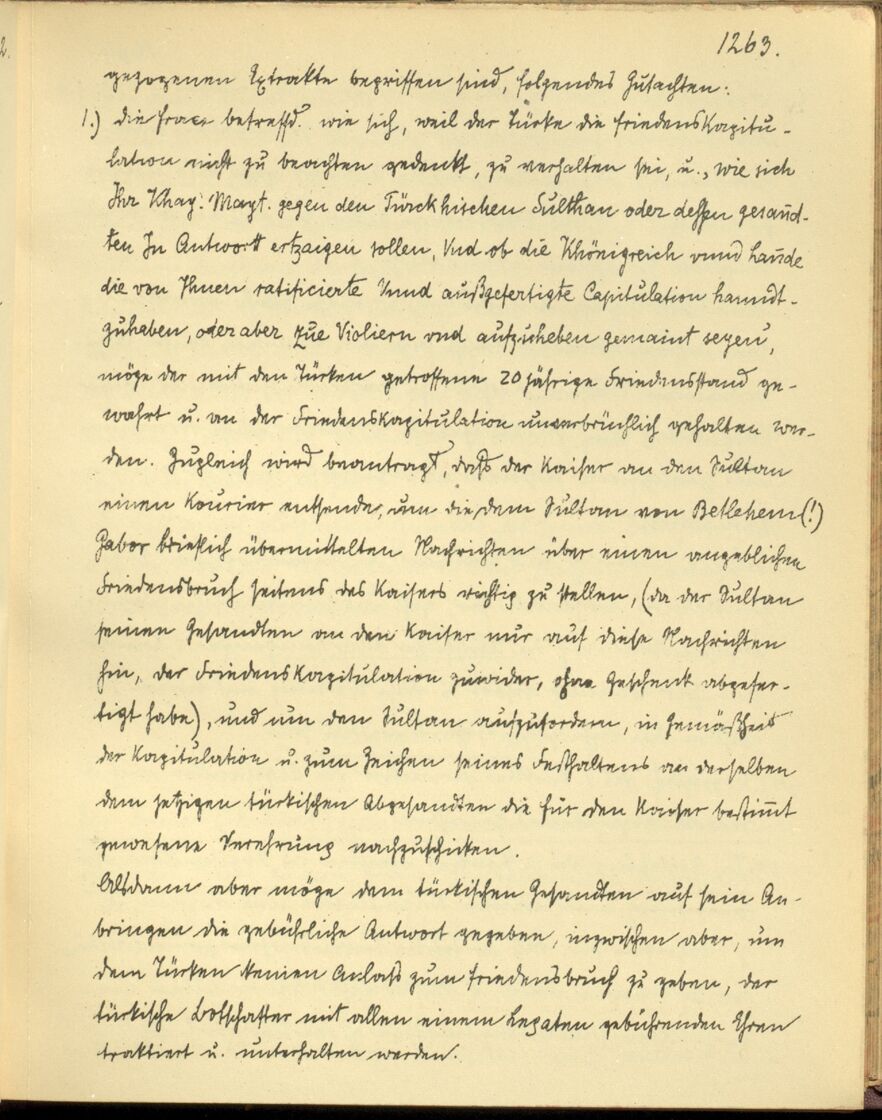 1263.
gezogenen Extrakte begriffen sind, folgendes Gutachten:
1.) die Frage betreffd. wie sich, weil der Türke die Friedenskapitu-
lation nicht zu beachten gedenkt, zu verhalten sei, u., wie sich
Ihr Khay. Mayt. gegen den Türckhischen Sulthan oder dessen gesand-
ten In Antwortt ertzaigen sollen, Vnd ob die Khönigreich vnnd Lannde
die von Ihnen ratificierte Vnnd außgefertigte Capitulation handt-
zuhaben, oder aber zue Violiern vnd aufzuheben gemaint seyen,
möge der mit den Türken getroffene 20 jährige Friedensstand ge-
wahrt u. an der Friedenskapitulation unverbrüchlich gehalten wer-
den. Zugleich wird beantragt, daß der Kaiser an den Sultan
einen Kourier entsende, um die, dem Sultan von Betlehem (!)
Gabor brieflich übermittelten Nachrichten über einen angeblichen
Friedensbruch seitens des Kaisers richtig zu stellen, (da der Sultan
seinen Gesandten an den Kaiser nur auf diese Nachrichten
hin, der Friedenskapitulation zuwider, ohne Geschenk abgefer-
tigt habe), und um den Sultan aufzufordern, in Gemäßheit
der Kapitulation u. zum Zeichen seines Festhaltens an derselben
dem jetzigen türkischen Abgesandten die für den Kaiser bestimmt
gewesene Verehrung nachzuschicken.
Alsdann aber möge dem türkischen Gesandten auf sein An-
bringen die gebührliche Antwort gegeben, inzwischen aber, um
dem Türken keinen Anlass zum Friedensbruch zu geben, der
türkische Botschafter mit allen einem Legaten gebührenden Ehren
traktiert u. unterhalten werden.